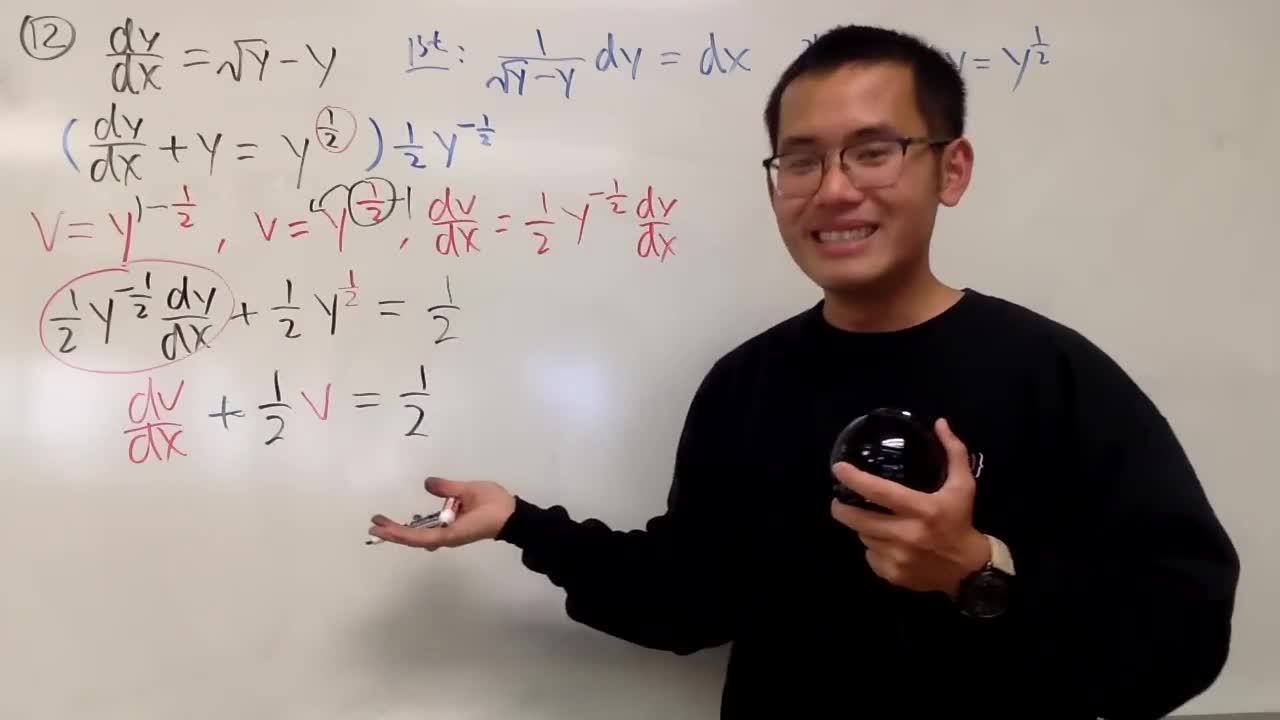 12 dy/dx = √y - y 1st: 1/(√y - y) dy = dx y = y^(1/2)
(dy/dx + y = y^(1/2)) 1/2 y^(-1/2)
v = y^(1-1/2), v = y^(1/2)-1, dv/dx = 1/2 y^(-1/2) dy/dx
1/2 y^(-1/2) dy/dx + 1/2 y^(1/2) = 1/2
dv/dx + 1/2 v = 1/2